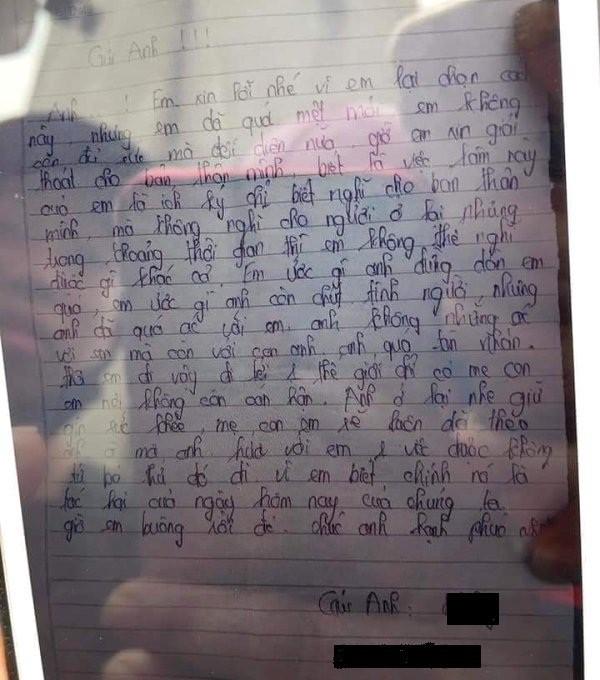 Gửi Anh !!!
Anh ! Em xin lỗi nhé vì em lại chọn cách
này, nhưng em đã quá mệt mỏi em không
còn đủ sức mà đối diện nữa, giờ em xin giải
thoát cho bản thân mình, biết là việc làm này
của em là ích kỷ chỉ biết nghĩ cho bản thân
mình, mà không nghĩ cho người ở lại nhưng
trong khoảng thời gian thì em không thể nghĩ
được gì khác cả. Em ước gì anh đừng dồn em
quá, em ước gì anh còn chút tình người nhưng
anh đã quá ác với em, anh không những ác
với em mà còn với con anh, anh quá tàn nhẫn.
em đi vậy đi tới 1 thế giới chỉ có mẹ con
em nơi không còn oan hận. Anh ở lại nhe giữ
gìn sức khỏe, mẹ con em sẽ luôn dõi theo
anh mà anh hứa với em 1 việc được không
từ bỏ thứ đó đi vì em biết chính nó là
tác hại của ngày hôm nay của chúng ta.
giờ em buông rồi đó. chúc anh hạnh phúc
Gửi Anh: